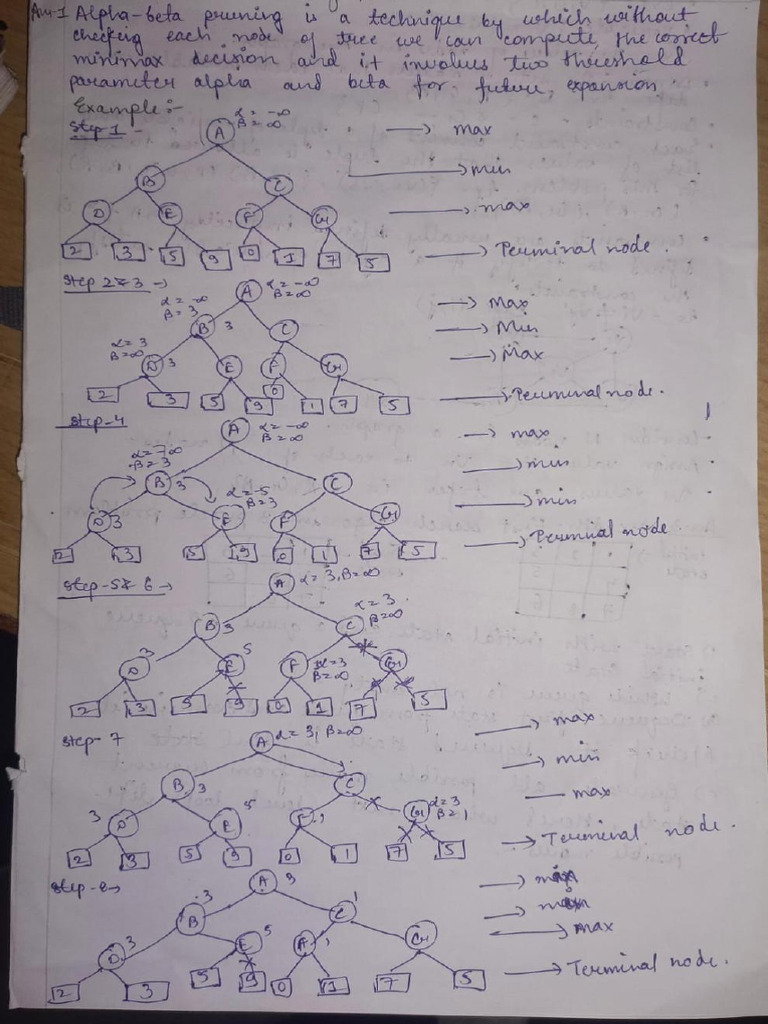 Ans-1 Alpha-beta pruning is a technique by which without
checking each node of tree we can compute the correct
minimax decision and it involves two threshold
parameter alpha and beta for future, expansion
Example:-
Step 1 -
α = -∞
β = ∞
A → max
B C → min
D E F G → max
2 3 5 9 0 1 7 5 → Terminal node.
Step 2&3 →
α = -∞
β = ∞
A → Max
α = -∞
β = 3
B 3 C → Min
α = 3
β = ∞
D 3 E F G → Max
2 3 5 9 0 1 7 5 → Terminal node.
Step-4
α = -∞
β = ∞
A → max
β = 3
B 3 C → min
α = 5
β = 3
D 3 E F G → min
2 3 5 9 0 1 7 5 → Terminal node
Step-5&6 →
A α = 3, β = ∞
α = 3
β = ∞
B 3 C
D 3 E 5 F α = 3
β = ∞
G
2 3 5 9 0 1 7 5
Step-7
A α = 3, β = ∞ → max
B 3 C → min
D 3 E 5 F 1 G α = 3
β = 1
max
2 3 5 9 0 1 7 5 → Terminal node.
Step-8 →
A 3
B 3 C 1
D 3 E 5 A 1 G → max
2 3 5 9 0 1 7 5 → Terminal node.